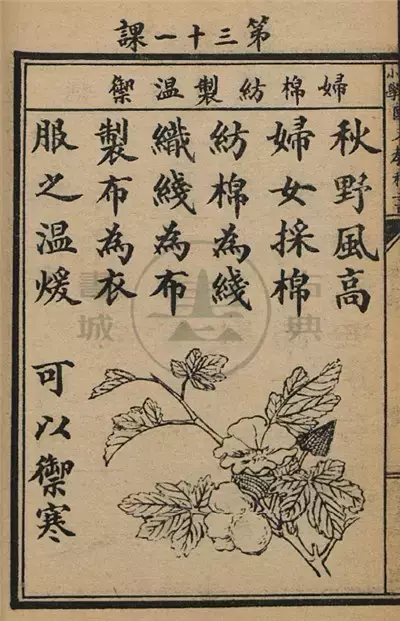 第三十一課
婦棉紡製温禦
秋野風高
婦女採棉
紡棉為綫
織綫為布
製布為衣
服之温煖 可以禦寒
古典書城